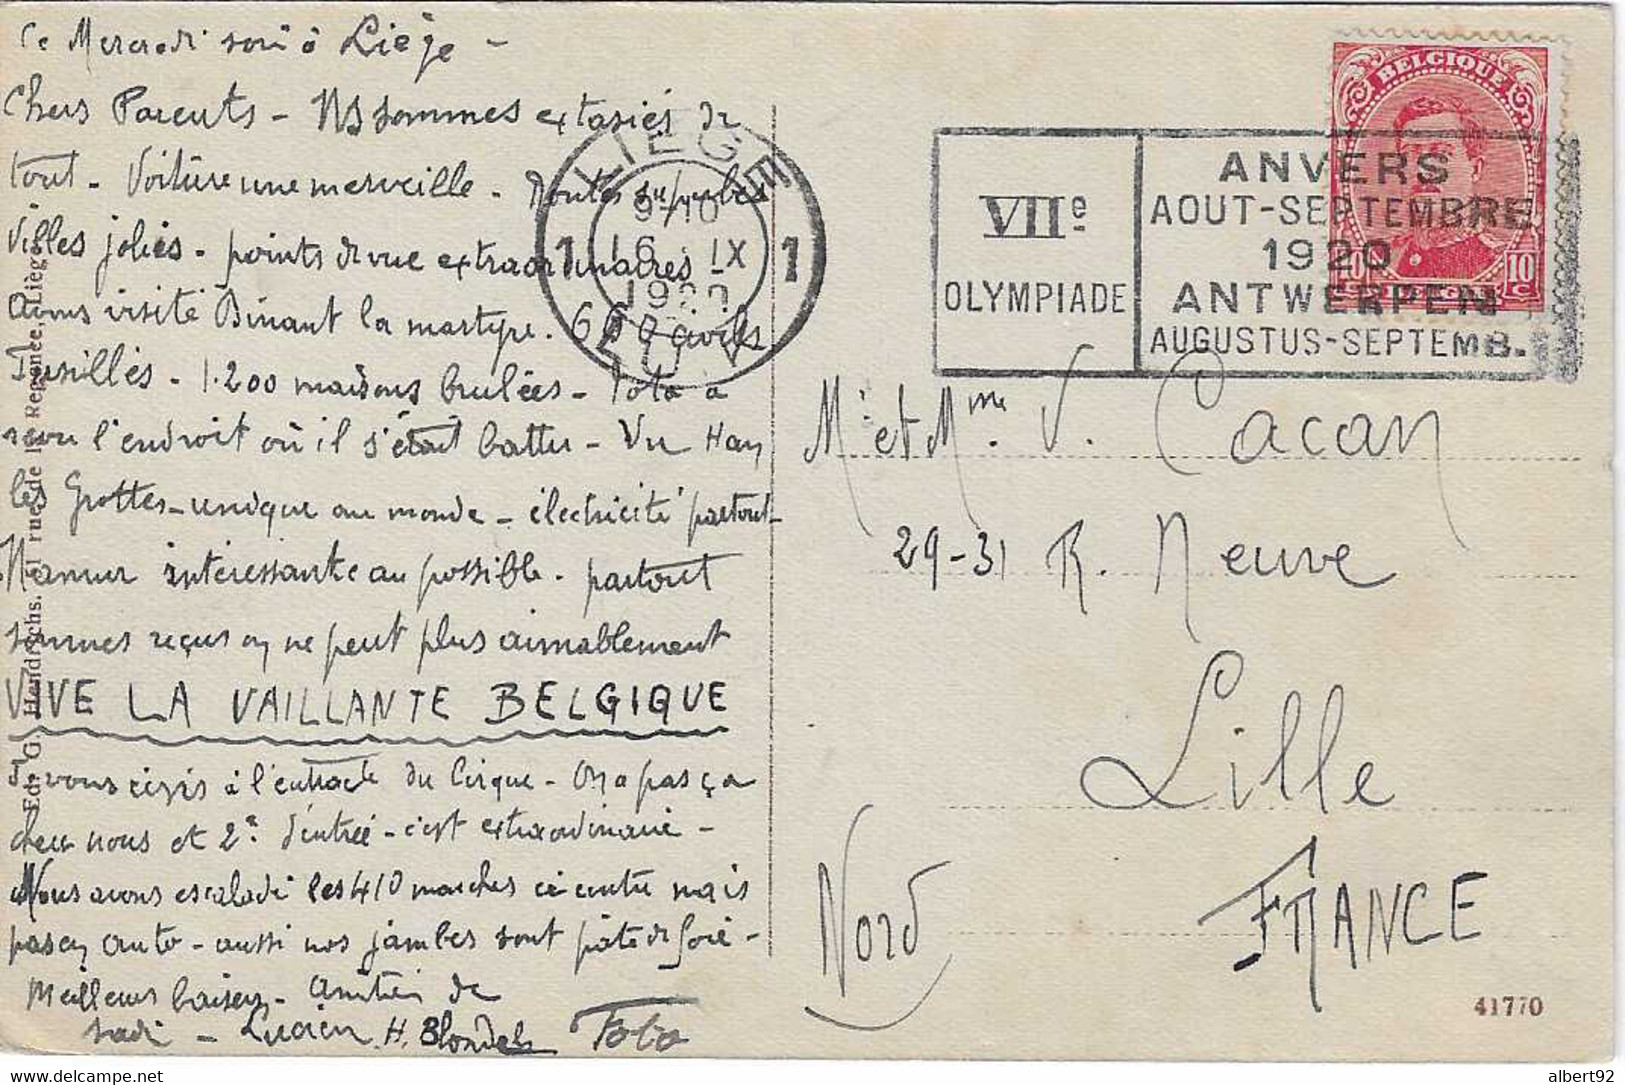 Ce Mercredi soir à Liège -
Chers Parents - Ns sommes extasiés de
tout - Voiture une merveille - Routes superbes
Villes jolies - points de vue extraordinaires
Avons visité Dinant la martyre. 600 civils
fusillés - 1.200 maisons brulées - Toto a
revu l'endroit où il s'était battu - Vu Han
les Grottes - unique au monde - électricité partout -
Namur intéressante au possible - partout
sommes reçus on ne peut plus aimablement
VIVE LA VAILLANTE BELGIQUE
Je vous écris à l'entracte du Cirque - On a pas ça
chez nous et 2f d'entrée - c'est extraordinaire -
Nous avons escaladé les 410 marches ci contre mais
pas en auto - aussi nos jambes sont pâte de foie -
Meilleurs baisers - Amitiés de
Lucien H. Blondel Toto
Edr. G. Hendrichs. rue de l Regence, Liège
LIEGE
1 9-10 1
16 IX
1920
LUIK
VIIe
OLYMPIADE
ANVERS
AOUT-SEPTEMBRE
1920
ANTWERPEN
AUGUSTUS-SEPTEMB.
BELGIQUE
10 10
c
Mr et Mme. V. Cacan
29-31 R. Neuve
Lille
Nord
FRANCE
41770
albert92